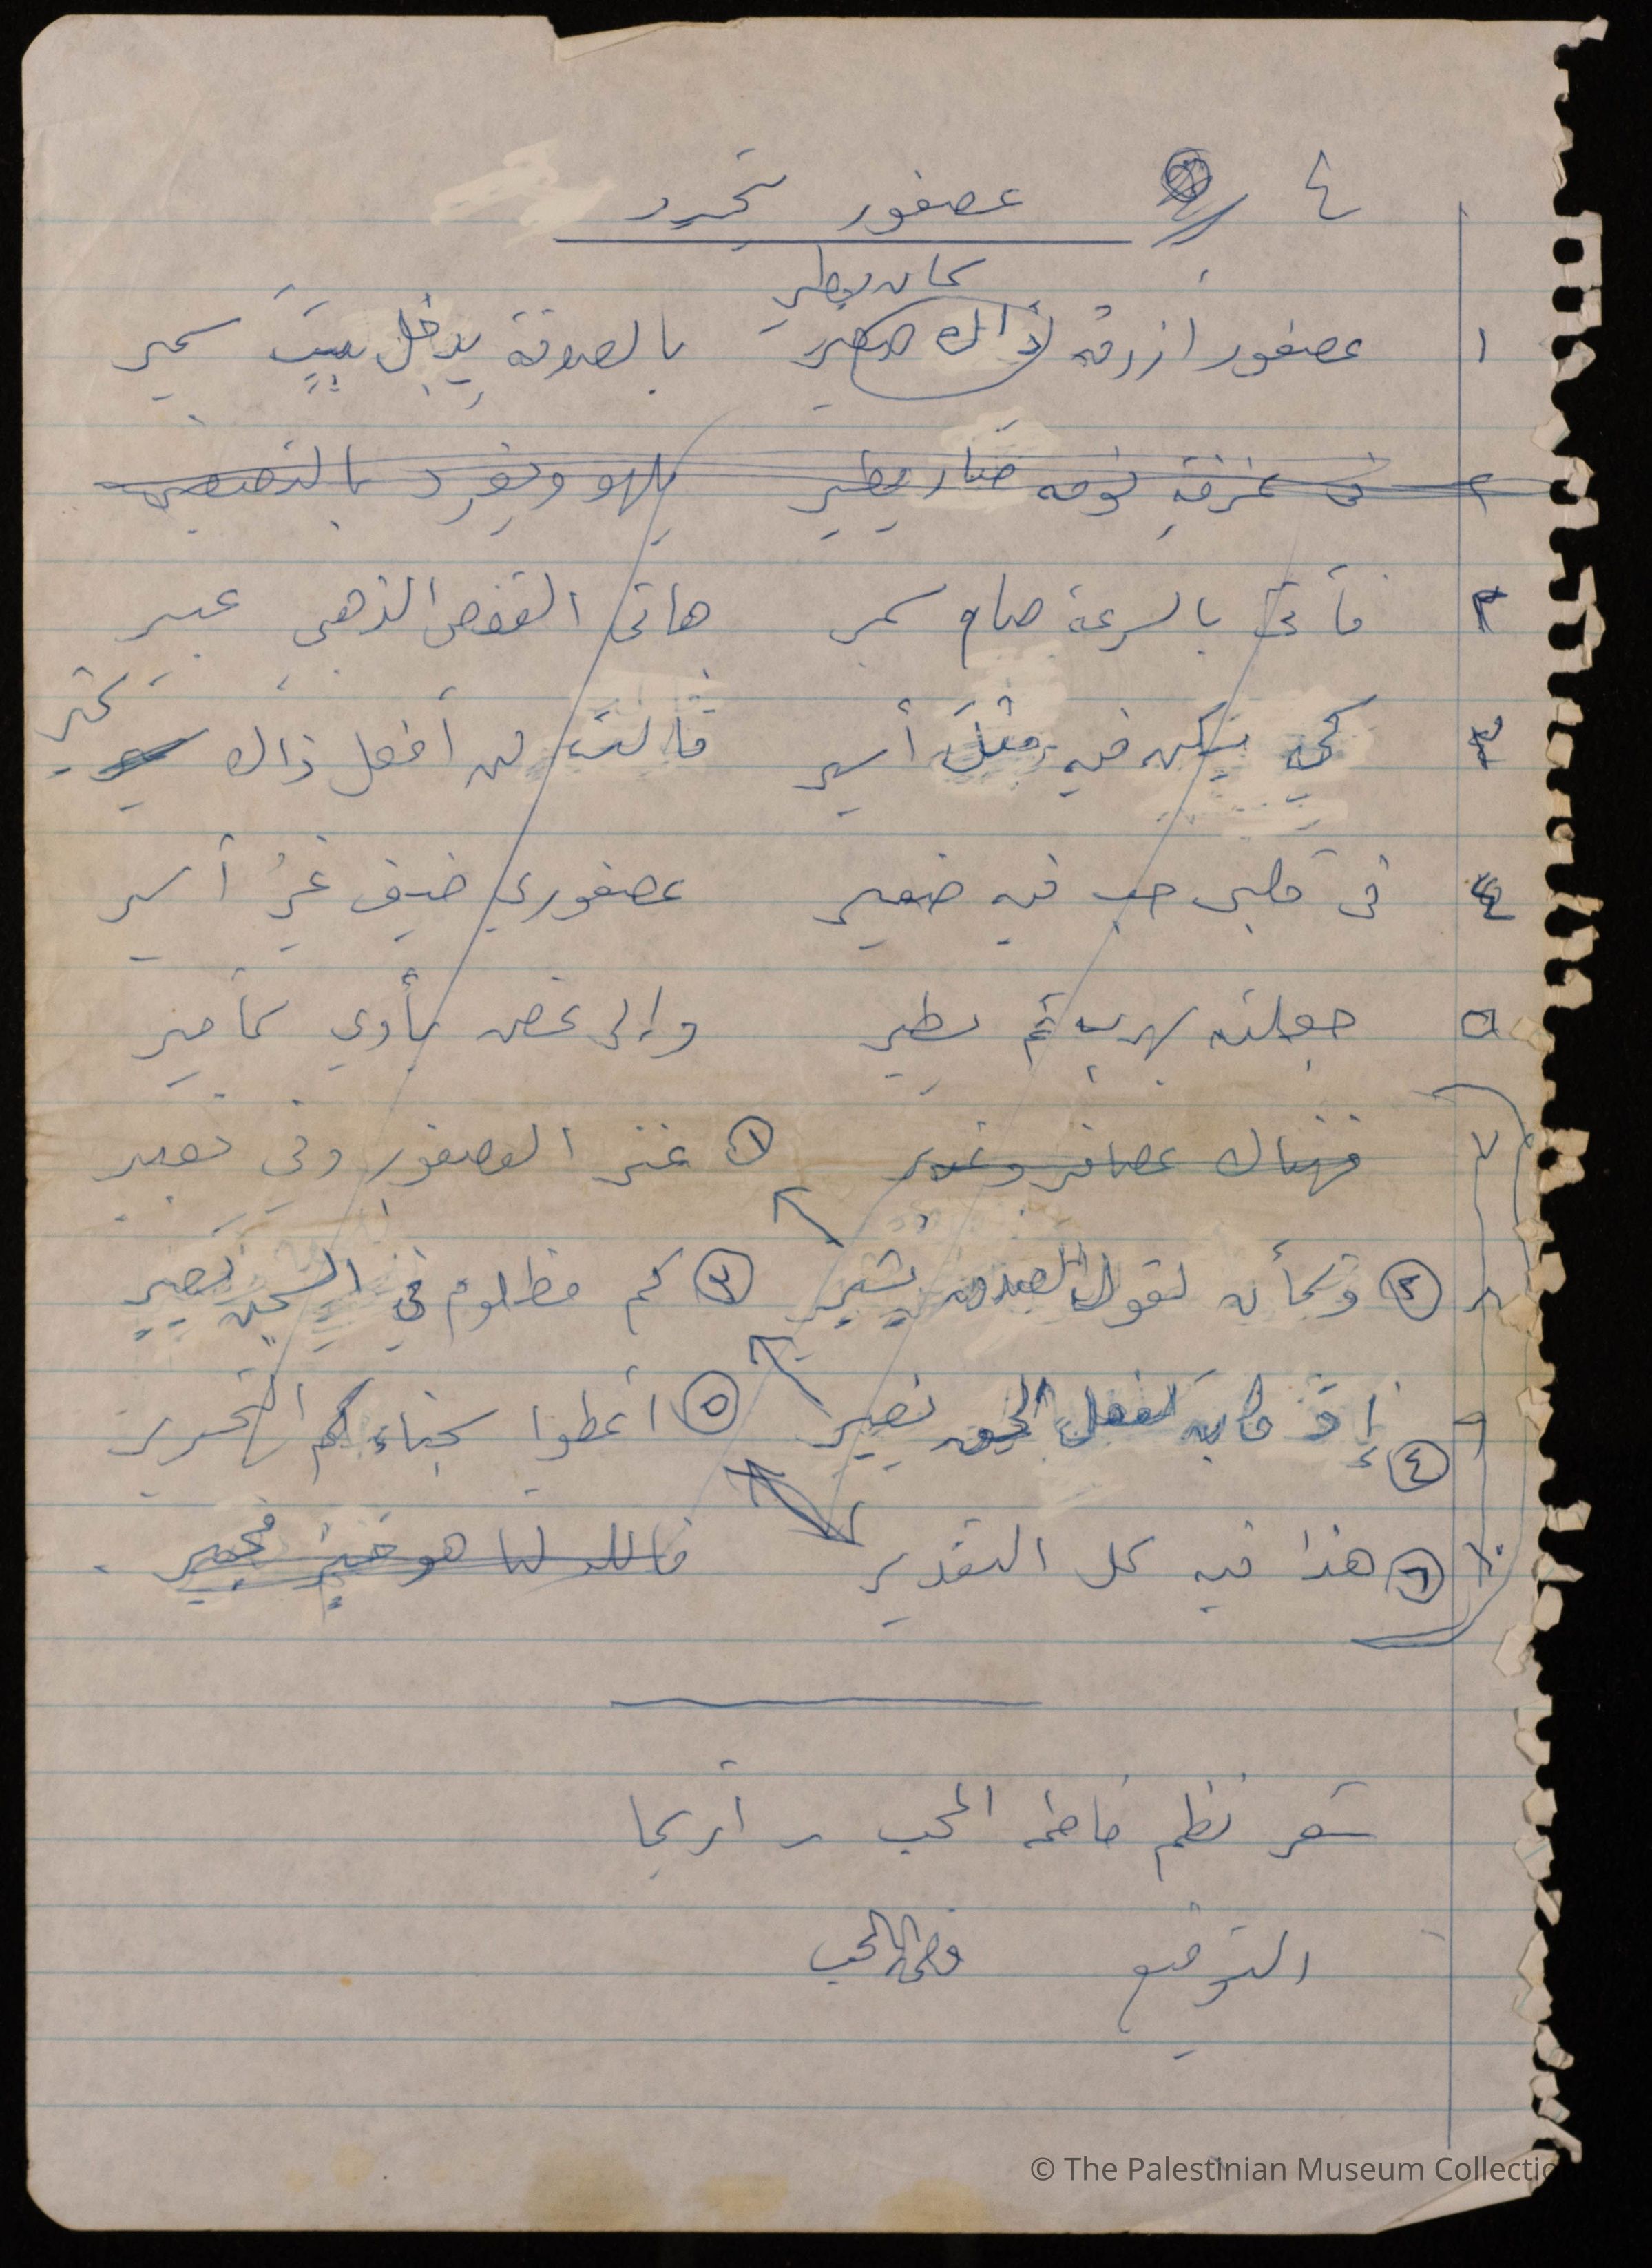 ٤ عصفور تحرر
كان يطير
١ عصفور أزرق ذاك صغير بالصدفة يدخل بيت سمير
٢ في غرفة نومه صار يطير يلهو ويغرد بالتصفير
٢ فأتى بالسرعة صاح سمير هاتي القفص الذهبي عبير
٣ كي يسكن فيه مثل أسير قالت لن أفعل ذاك
٤ في قلبي حب فيه ضمير عصفوري ضيف غير أسير
٥ جعلته يهرب ثم يطير وإلى غصن يأوي
٧ فهناك عصافر وغدير ١ غنى العصفور وفي تعبير
٢ وكأن لقول الصدق يشير ٣ كم مظلوم في السجن نصير
٤ إذ قال لفعل الحق نصير ٥ أعطوا سجناءكم التحرير
٦ هذا فيه كل التقدير فالله لنا هو خير مجير .
شعر نظم فاطمة المحب - أريحا
التوقيع فاطمة المحب
© The Palestinian Museum Collectio